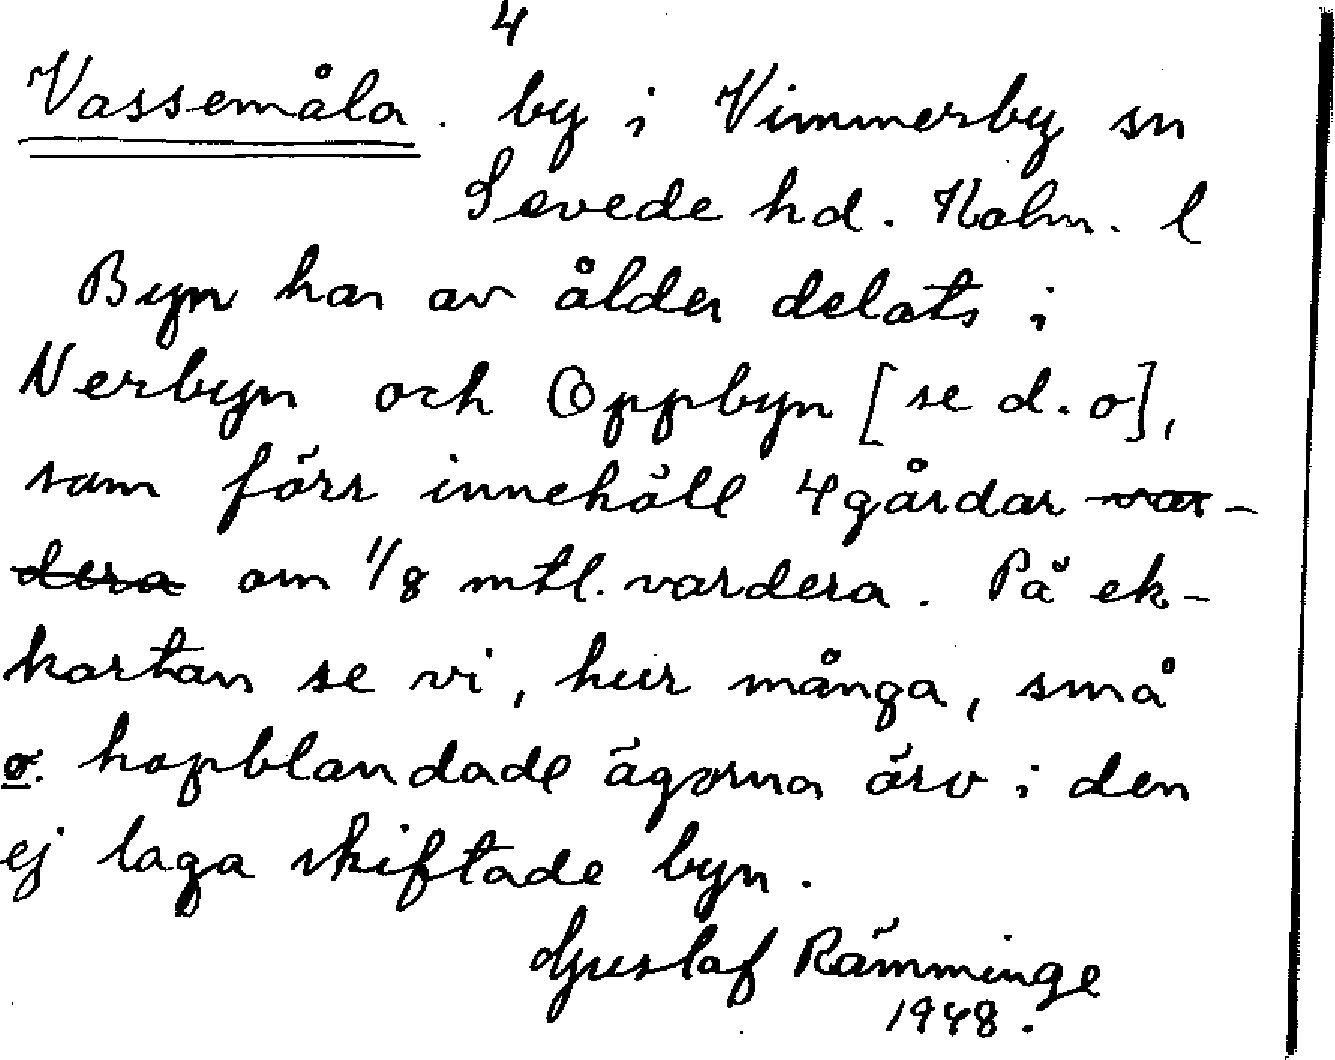 4
Vassemåla. by i Vimmerby sn
Sevede hd. Kalm. l
Byn har av ålder delats i
Nerbyn och Oppbyn [se d. o],
som förr innehöll 4 gårdar var-
dera om 1/8 mtl. vardera. På ek-
kartan se vi, hur många, små
o. hopblandade ägorna äro i den
ej laga skiftade byn.
Gustaf Rämminge
1948.